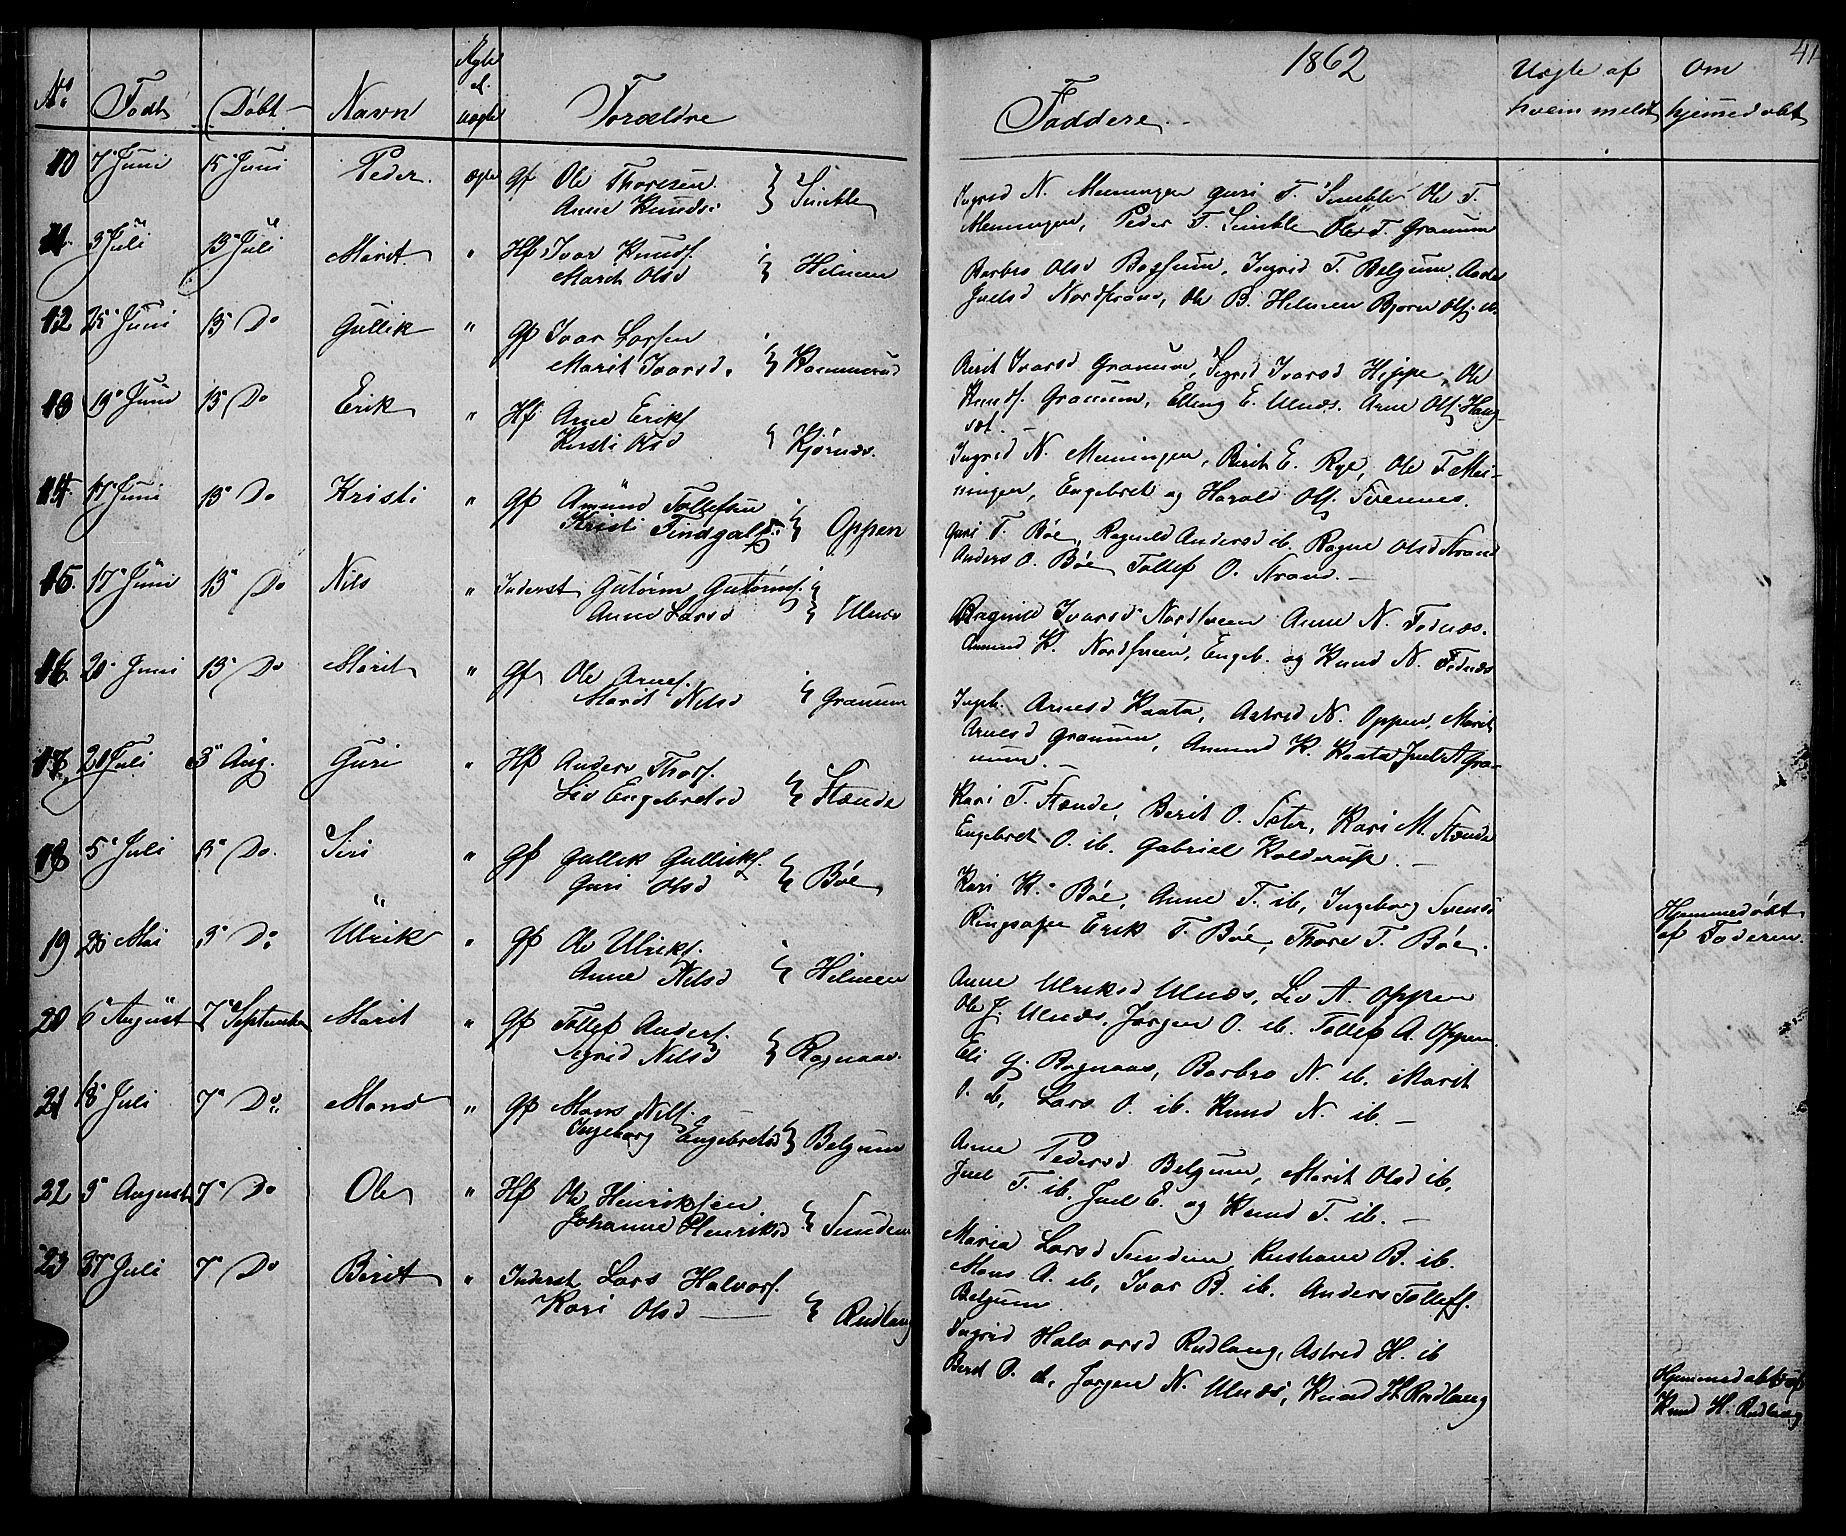 1862
41
No Födt Döbt Navn Ægte el. uægte Forældre Faddere. Uægte af hvem meldt Om hjemmedøbt
10 7 Juni 15 Juni Peder. ægte Gf Ole Thoresen
Anne Knudsd } Simble
Ingrid N. Menningen Guri T. Simble Ole T.
Menningen, Peder T. Simble Ole T. Granum
11 3 Juli 13 Juli Marit " Hf Ivar Knuds.
Marit Olsd } Hilmen
Barbro Olsd Bagsum, Ingrid T. Belgum.
Juelsd Nordstrand, Ole B. Hilmen Bjørn Ols. ib.
12 25 Juni 13 Do Gullik " Gf Ivar Larsen
Marit Ivarsd.
Berit Ivarsd Granum, Sigrid Ivarsd Hippe, Ole
Knuds. Granum, Elling E. Ulnæs. Arne Ols. Haug-
sæt.
13 19 Juni 13 Do Erik " Hf Arne Eriks.
Kirsti Olsd } Kjørnæs.
Ingrid N. Menningen, Berit E. Rye, Ole T. Men-
ningen, Engebret og Harald Ols. Svennes.
14. 11 Juni 13 Do Kristi " Gf Amund Tollefsen
Kristi Findgals. } Oppen
Guri T. Bøe, Ragnild Andersd ib. Ragne Olsd Strand
Anders O. Bøe, Tollef O. Strand. —
15. 17 Juni 13 Do Nils " Inderst Gutorm Gutorms.
Anne Larsd } Ulnæs
Ragnild Ivarsd Nordsveen Anne N. Fodnæs.
Amund K. Nordsveen, Engeb. og Knud N. Fodnæs
16 20 Juni 13 Do Marit " Gf Ole Arnes.
Marit Nilsd } Granum
Ingb. Arnesd Kaata, Astrid N. Oppen, Marit
Arnesd Granum, Amund K. Kaata Juel A Gra-
num. —
17 21 Juli 3 Aug. Guri " Hf Anders Thors.
Liv Engebretsd } Stende
Kari T. Stende, Berit O. Sæter, Kari M. Stende
Engebret O. ib. Gabriel Kolderup. —
18 5 Juli 3 Do. Siri " Gf Gullik Gulliks.
Guri Olsd } Bøe
Kari K. Bøe, Anne T. ib, Ingeborg Svensd
Ringsager Erik T. Bøe, Thore T. Bøe.
19 26 Mai 3 Do Ulrik " Gf Ole Ulriks.
Anne Nilsd } Hilmen
Hjemmedøbt
af Faderen.
Anne Ulriksd Ulnæs, Liv A. Oppen
Ole J. Ulnæs, Jørgen O. ib. Tollef A. Oppen.
20 6 August 7 September Marit " Gf Tollef Anders.
Sigrid Nilsd } Ragnaas.
Eli G. Ragnaas, Barbro N. ib. Marit
O. ib, Lars O. ib. Knud N. ib. —
21 18 Juli 7 Do Mons " Gf Mons Nils.
Ingeborg Engebretsd } Belgum
Anne Pedersd Belgum, Marit Olsd ib.
Juel T. ib. Juel E. og Knud T. ib. —
22 5 August 7 Do Ole " Hf Ole Henriksen
Johanne Henriksd } Sundem
Maria Larsd Sundem, Kristiane B. ib.
Mons A. ib, Ivar B. ib. Anders Tollefs.
Belgum.
23 27 Juli 7 Do Berit " Inderst Lars Halvors.
Kari Olsd — } Rudlang
Ingrid Halvorsd Rudlang, Astrid H. ib
Berit O. ib, Jørgen N. Ulnæs, Knud H. Rudlang
Hjemmedøbt af
Knud H. Rudlang